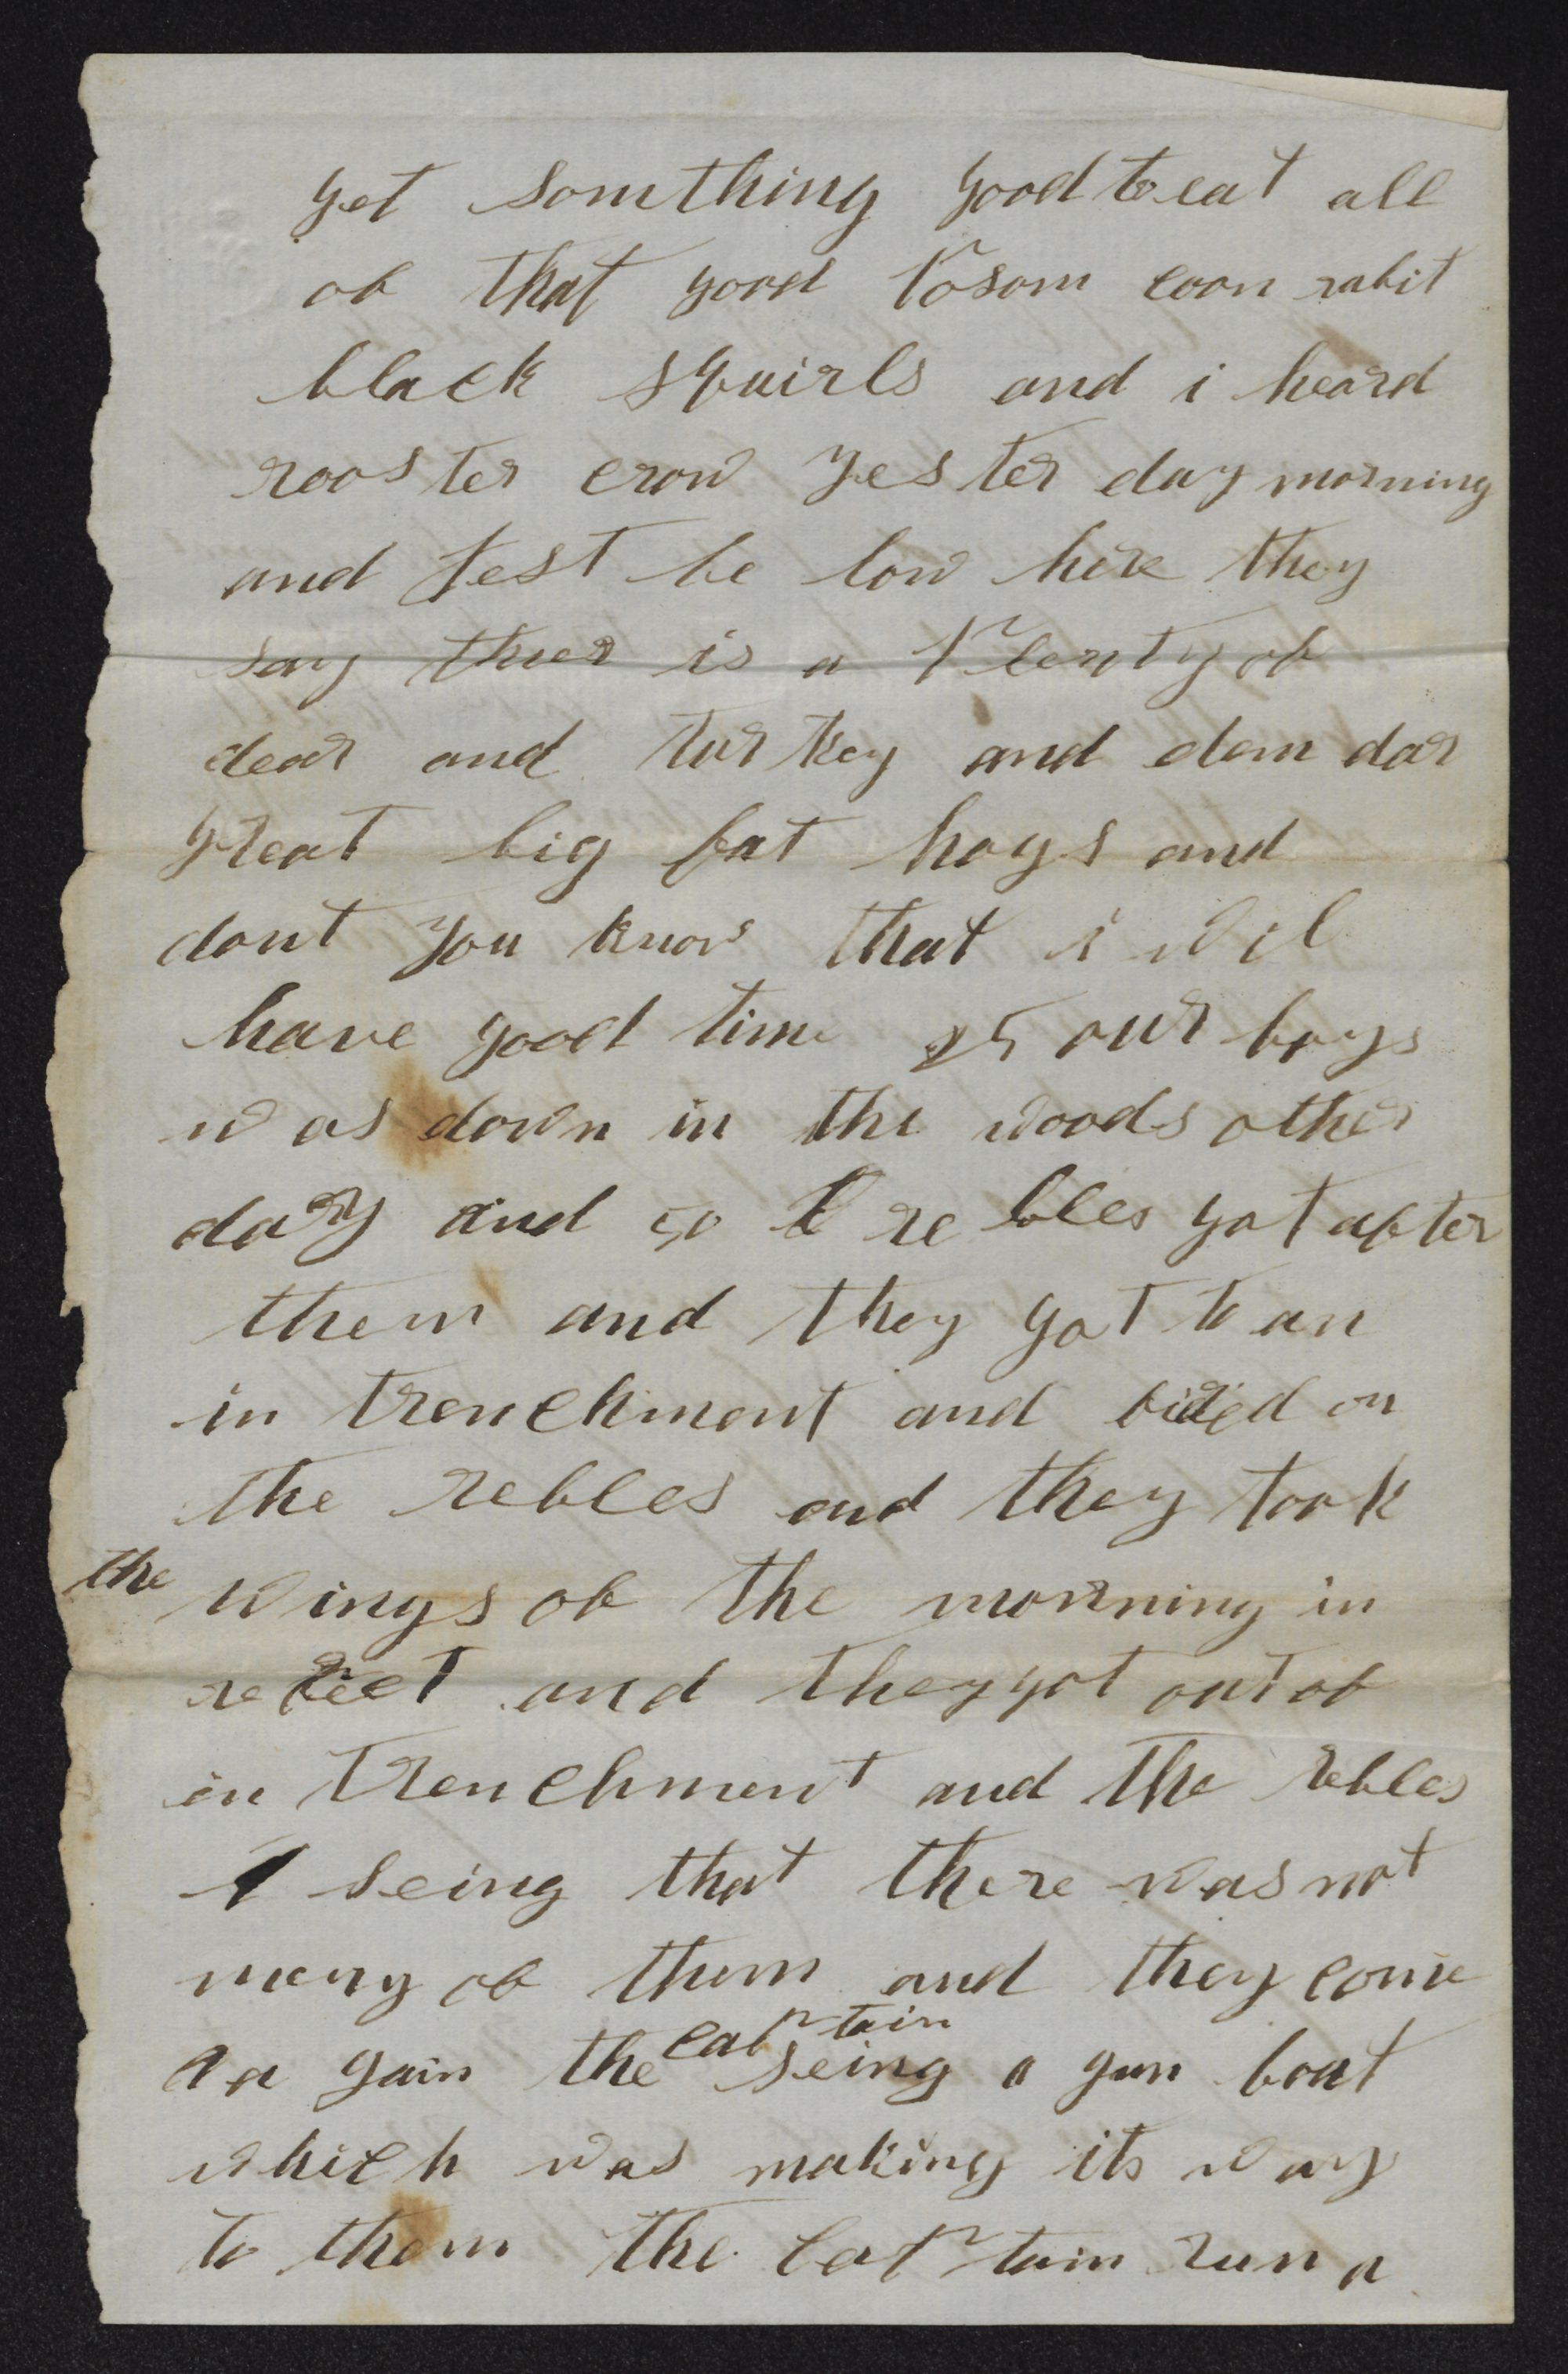 get somthing good to eat all
of that good Posom coon rabit
black squirls and i heard
rooster crow yester day morning
and jest be low here they
say ther is a Plenty of
dear and turkey and dem dar
great big fat hogs and
dont you know that i wil
have good time 25 our boys
was down in the woods other
day and so re bles got after
them and they got to an
in trenchment and fired on
the rebles and they took
the wings of the morning in
retreet and they got out of
in trenchment and the rebles
seing that there was not
meny of them and they come
a gain the captain seing a gun boat
which was making its way
to them the captain run a